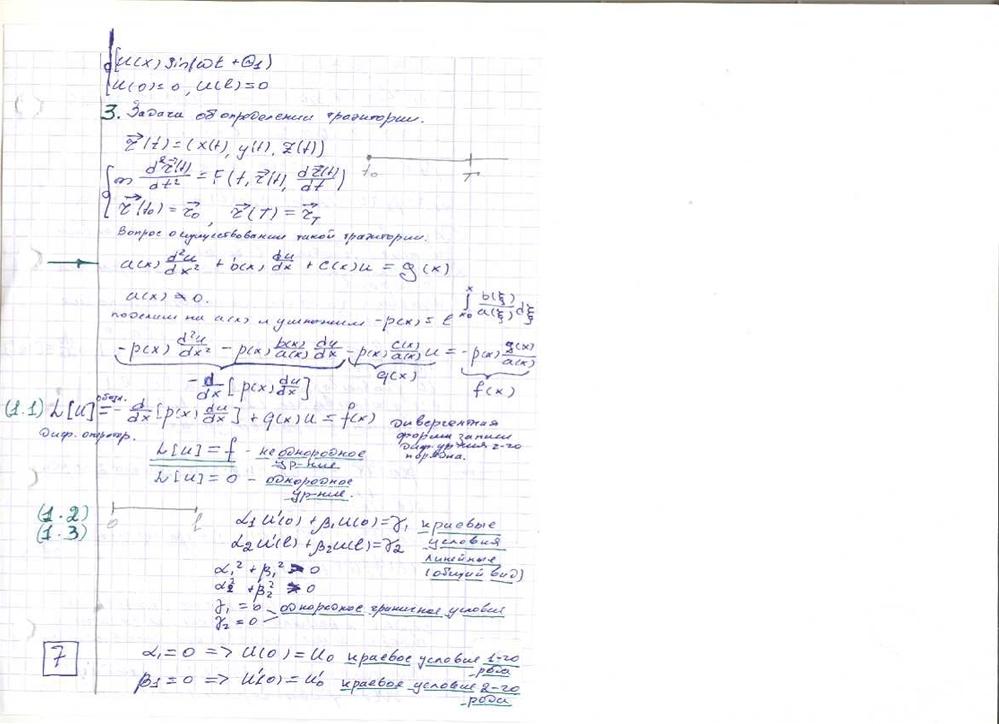 U(x) sin(ωt + Θ₁)
U(0)=0, U(l)=0
3. Задача об определении траитории.
r⃗(t) = (x(t), y(t), z(t))
m d²r⃗(t)/dt² = F(t, r⃗(t), dr⃗(t)/dt)
t₀ T
r⃗(t₀) = r⃗₀, r⃗(T) = r⃗_T
Вопрос о существовании такой траитории.
→ a(x) d²u/dx² + b(x) du/dx + c(x)u = g(x)
a(x) ≠ 0.
поделим на a(x) и умножим -p(x) = e^∫_{x₀}^{x} b(ξ)/a(ξ) dξ
-p(x) d²u/dx² - p(x) b(x)/a(x) du/dx - p(x) c(x)/a(x) u = -p(x) g(x)/a(x)
-d/dx [p(x) du/dx] q(x) f(x)
(1.1) L[u] обозн. = -d/dx [p(x) du/dx] + q(x)u = f(x) дивергентная
диф. оператор. форма записи
диф. ур-ния 2-го
порядка.
L[u] = f - неоднородное
ур-ние
L[u] = 0 - однородное
ур-ние.
(1.2) 0 l
(1.3)
α₁u'(0) + β₁u(0) = γ₁ краевые
α₂u'(l) + β₂u(l) = γ₂ условия
линейные
α₁² + β₁² > 0 (общий вид)
α₂² + β₂² > 0
γ₁ = 0 однородное граничное условие
γ₂ = 0
7
α₁ = 0 => u(0) = u₀ краевое условие 1-го
рода
β₁ = 0 => u'(0) = u'₀ краевое условие 2-го
рода